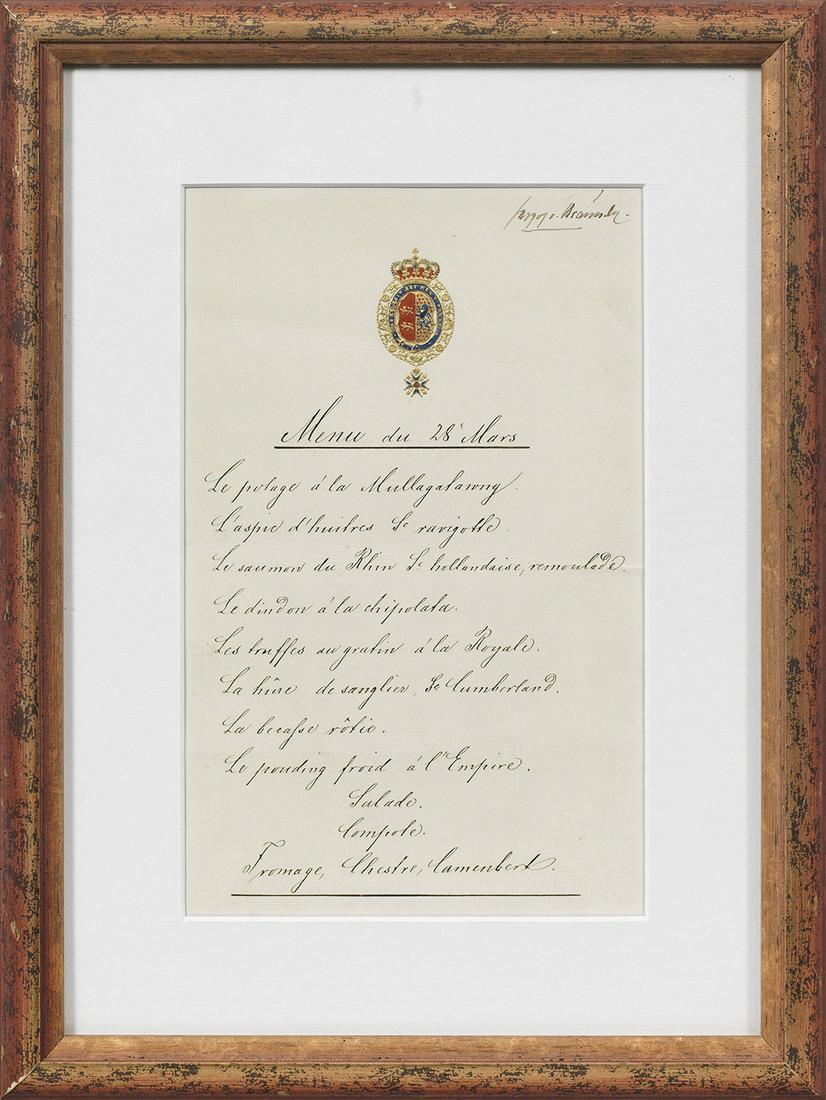 Menu du 28ᵗ Mars
Le potage à la Mullagatawny.
L'aspic d'huitres Sᶜ ravigotte.
Le saumon du Rhin Sᶜ hollandaise, remoulade.
Le dindon à la chipolata.
Les truffes au gratin à la Royale.
La hûre de sanglier, Sᶜ Cumberland.
La becasse rôtie.
Le pouding froid à l'Empire.
Salade.
Compote.
Fromage, Chestre, Camenbert.